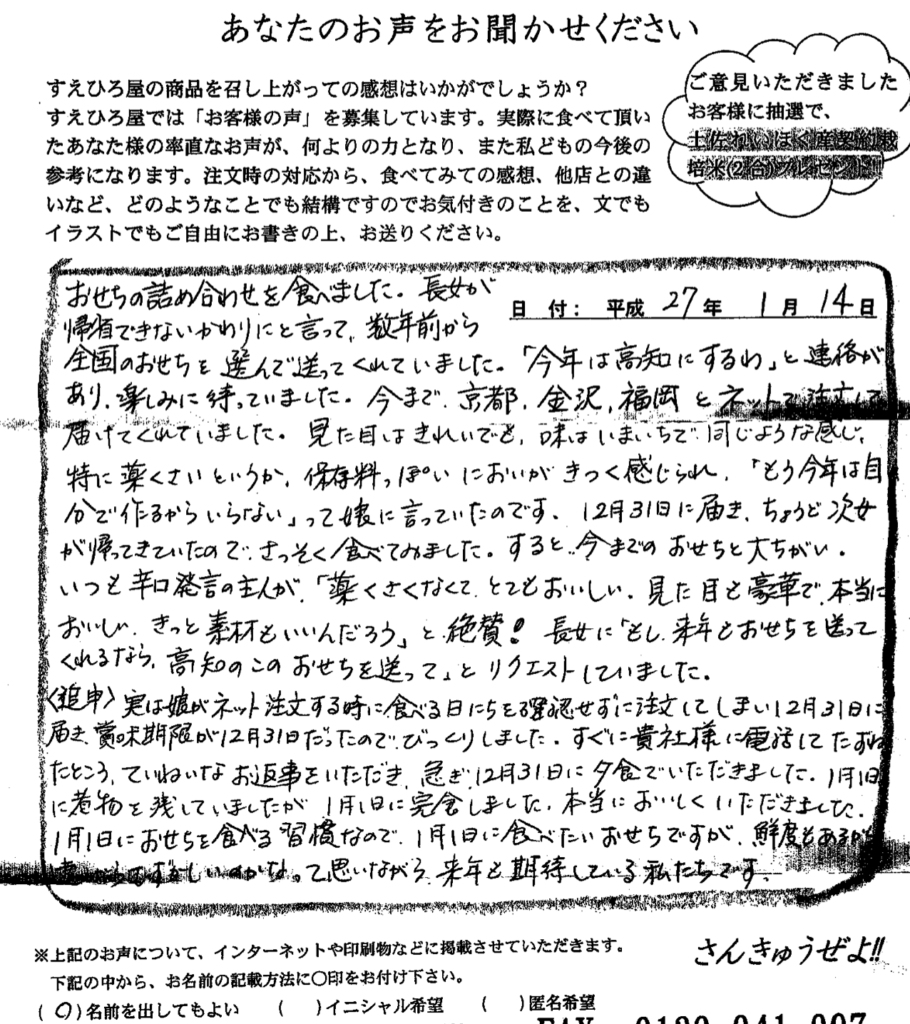 あなたのお声をお聞かせください
すえひろ屋の商品を召し上がっての感想はいかがでしょうか？
すえひろ屋では「お客様の声」を募集しています。実際に食べて頂い
たあなた様の率直なお声が、何よりの力となり、また私どもの今後の
参考になります。注文時の対応から、食べてみての感想、他店との違
いなど、どのようなことでも結構ですのでお気付きのことを、文でも
イラストでもご自由にお書きの上、お送りください。
ご意見いただきました
お客様に抽選で、
土佐れいほく産契約栽
培米(2合)プレゼント!!
日 付： 平成 27年 1月 14日
おせちの詰め合わせを食べました。長女が
帰省できないかわりにと言って、数年前から
全国のおせちを選んで送ってくれていました。「今年は高知にするわ」と連絡が
あり、楽しみに待っていました。今まで、京都、金沢、福岡とネットで注文して
届けてくれていました。見た目はきれいでも、味はいまいちで同じような感じ、
特に薬くさいというか、保存料っぽいにおいがきつく感じられ、「もう今年は自
分で作るからいらない」って娘に言っていたのです。12月31日に届き、ちょうど次女
が帰ってきていたので、さっそく食べてみました。すると、今までのおせちと大ちがい。
いつも辛口発言の主人が、「薬くさくなくて、とてもおいしい。見た目も豪華で、本当に
おいしい、きっと素材もいいんだろう」と絶賛！ 長女に「もし、来年もおせちを送って
くれるなら、高知のこのおせちを送って」とリクエストしていました。
〈追申〉実は娘がネット注文する時に、食べる日にちを確認せずに注文してしまい12月31日に
届き、賞味期限が12月31日だったので、びっくりしました。すぐに貴社様に電話してたずね
たところ、ていねいなお返事をいただき、急ぎ、12月31日に夕食でいただきました。1月1日
に煮物を残していましたが、1月1日に完食しました。本当においしくいただきました。
1月1日におせちを食べる習慣なので、1月1日に食べたいおせちですが、鮮度もあるから
むずかしいのかな。って思いながら、来年も期待している私たちです。
※上記のお声について、インターネットや印刷物などに掲載させていただきます。
下記の中から、お名前の記載方法に〇印をお付け下さい。
さんきゅうぜよ!!
(〇)名前を出してもよい ( )イニシャル希望 ( )匿名希望
FAX 0120-041-007